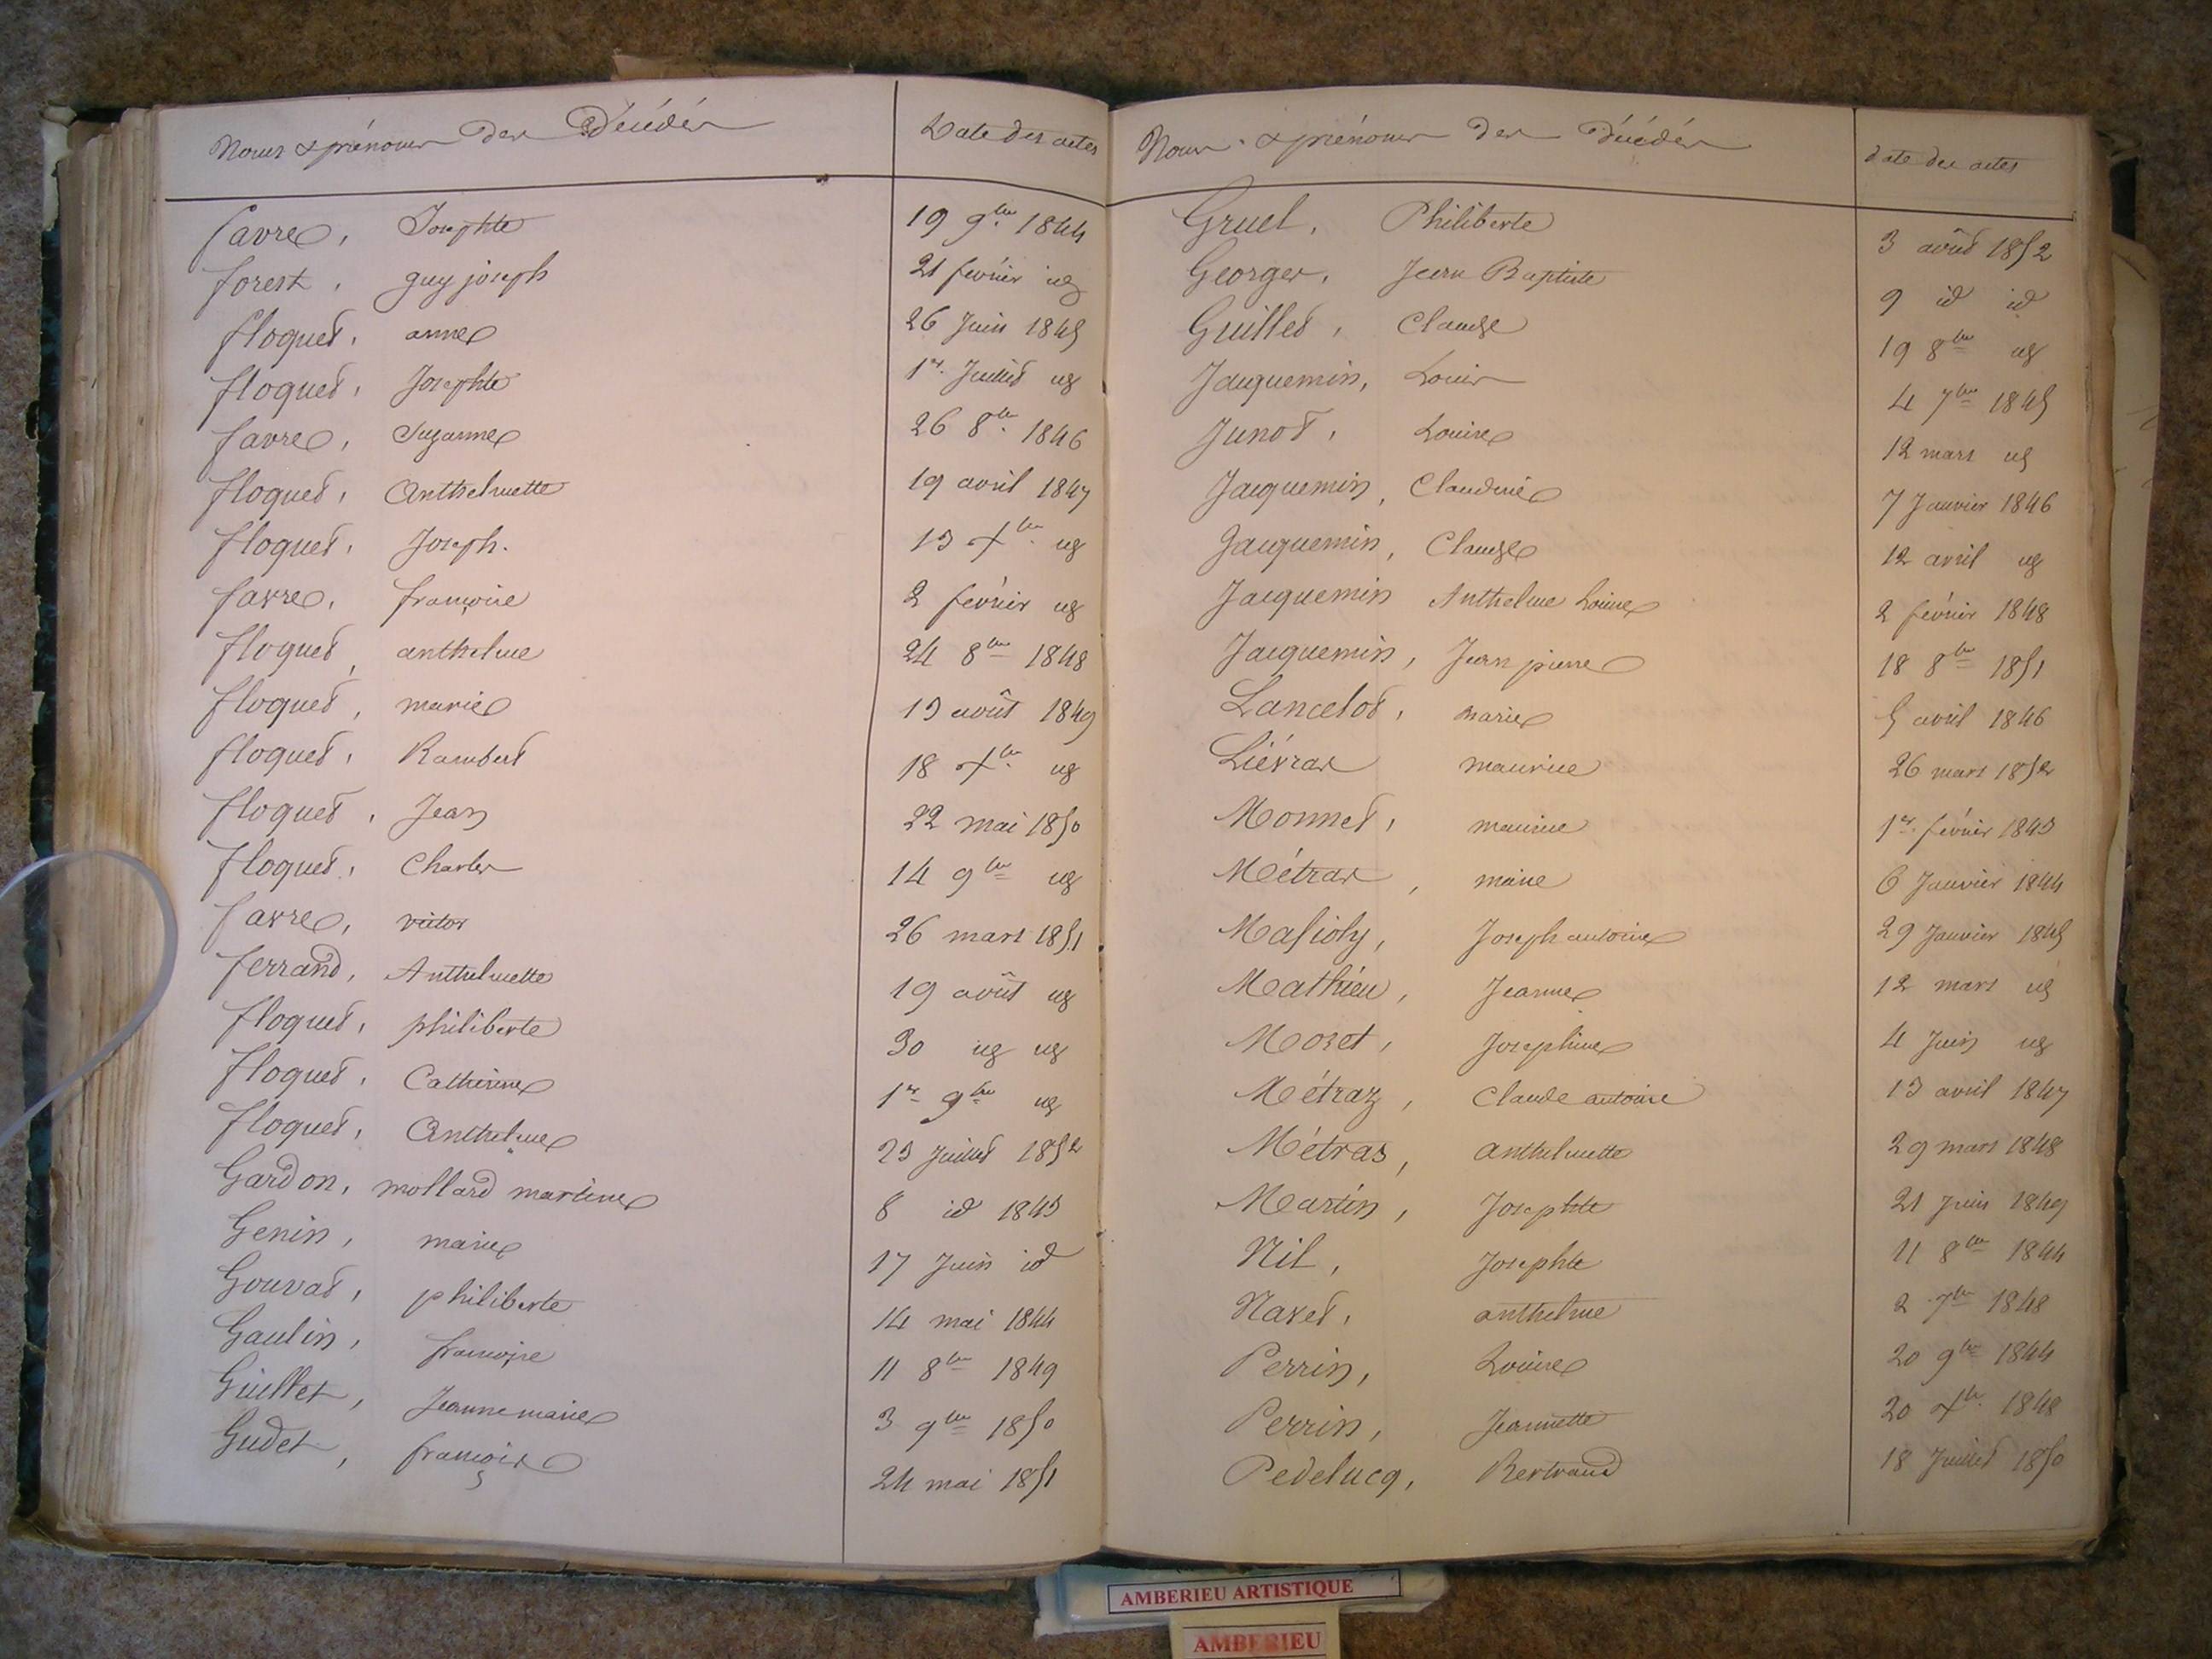 Noms & prénoms des Décédés Date des actes
favre, Josephte 19 9bre 1844
forest, guy joseph 21 février id
floquet, anne 26 Juin 1845
floquet, Josephte 1er Juillet id
favre, Suzanne 26 8bre 1846
floquet, Anthelmette 19 avril 1847
floquet, Joseph. 13 Xbre id
favre, françoise 2 février id
floquet, anthelme 24 8bre 1848
floquet, marie 13 août 1849
floquet, Rambert 18 Xbre id
floquet, Jean 22 mai 1850
floquet, Charles 14 9bre id
favre, victor 26 mars 1851
ferrand, Anthelmette 19 août id
floquet, philiberte 30 id id
floquet, Catherine 1er 9bre id
floquet, Anthelme 23 Juillet 1852
Gardon, mollard martine 8 id 1843
Genin, marie 17 Juin id
Gouvat, philiberte 14 mai 1844
Gaulin, françoise 11 8bre 1849
Guillet, Jeanne marie 3 9bre 1850
Gudet, françois 24 mai 1851
Noms & prénoms des Décédés date des actes
Gruel, Philiberte 3 août 1852
Georges, Jean Baptiste 9 id id
Guillet, Claude 19 8bre id
Jacquemin, Louis 4 7bre 1845
Junot, Louise 12 mars id
Jacquemin, Claudine 7 Janvier 1846
Jacquemin, Claude 12 avril id
Jacquemin Anthelme Louise 2 février 1848
Jacquemin, Jean pierre 18 8bre 1851
Lancelot, marie 5 avril 1846
Liévrar maurice 26 mars 1852
Monnet, maurice 1er février 1843
Métrar, marie 6 Janvier 1844
Masioly, Joseph antoine 29 Janvier 1845
Mathieu, Jeanne 12 mars id
Moret, Josephine 4 Juin id
Métraz, Claude antoine 13 avril 1847
Métras, anthelmette 29 mars 1848
Martin, Josephte 21 Juin 1849
Nil, Josephte 11 8bre 1844
Navet, anthelme 2 7bre 1848
Perrin, Louise 20 9bre 1844
Perrin, Jeannette 20 Xbre 1848
Pedelucq, Bertrand 18 Juillet 1850
AMBERIEU ARTISTIQUE
AMBERIEU